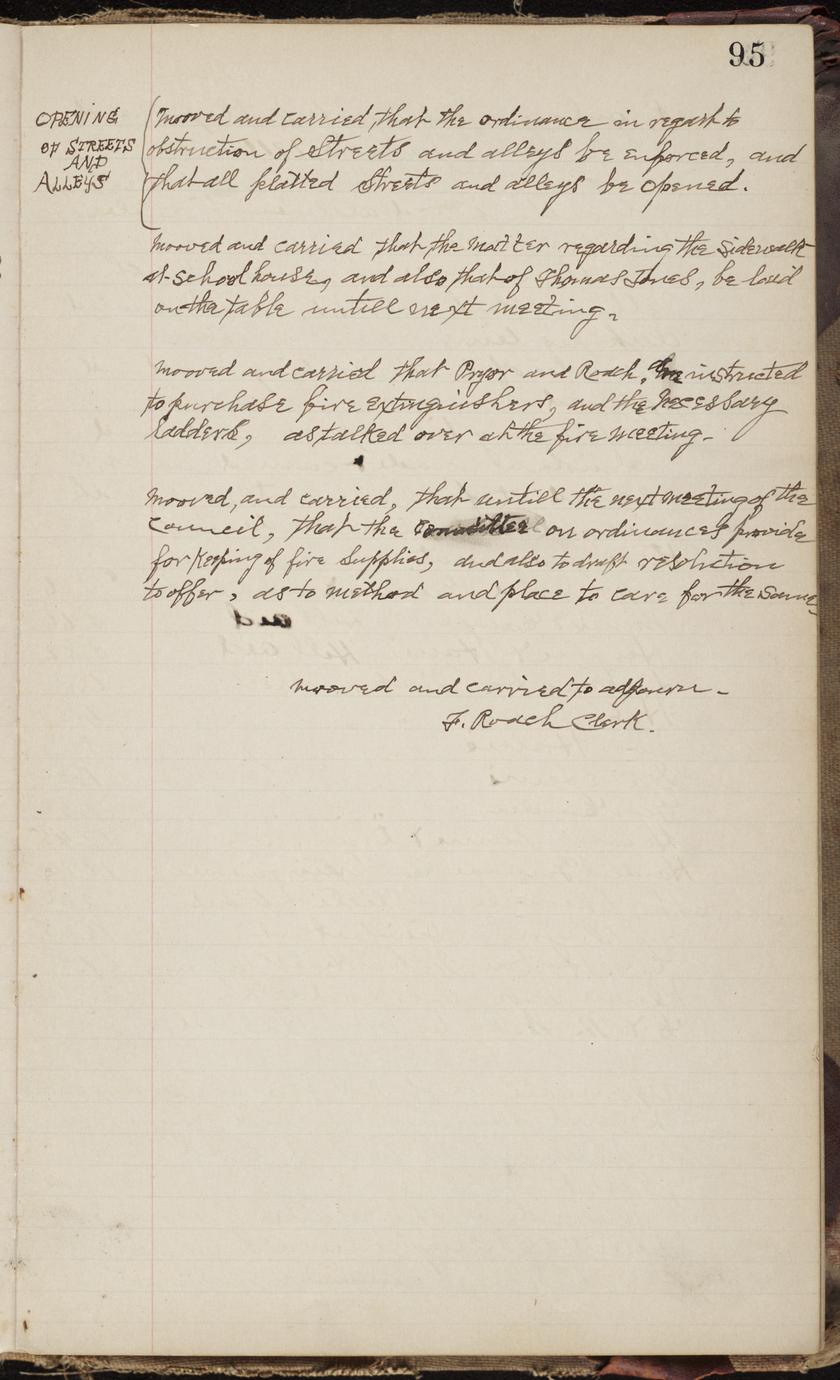 95
OPENING
OF STREETS
AND
ALLEYS
Mooved and carried, that the ordinance in regard to
obstruction of Streets and alleys be enforced, and
that all platted Streets and alleys be opened.
Mooved and carried that the matter regarding the Sidewalk
at School house, and also, that of Thomas Jones, be laid
on the table untill next meeting.
Mooved and carried that Pryor and Roach, instructed
to purchase fire extinguishers, and the necessary
ladders, as talked over at the fire meeting.
Mooved, and carried, that untill the next meeting of the
Council, that the Committee on ordinances provide
for keeping of fire Supplies, and also to draft resolution
to offer, as to method and place to care for the Same
Mooved and carried to adjourn.
F. Roach Clerk.